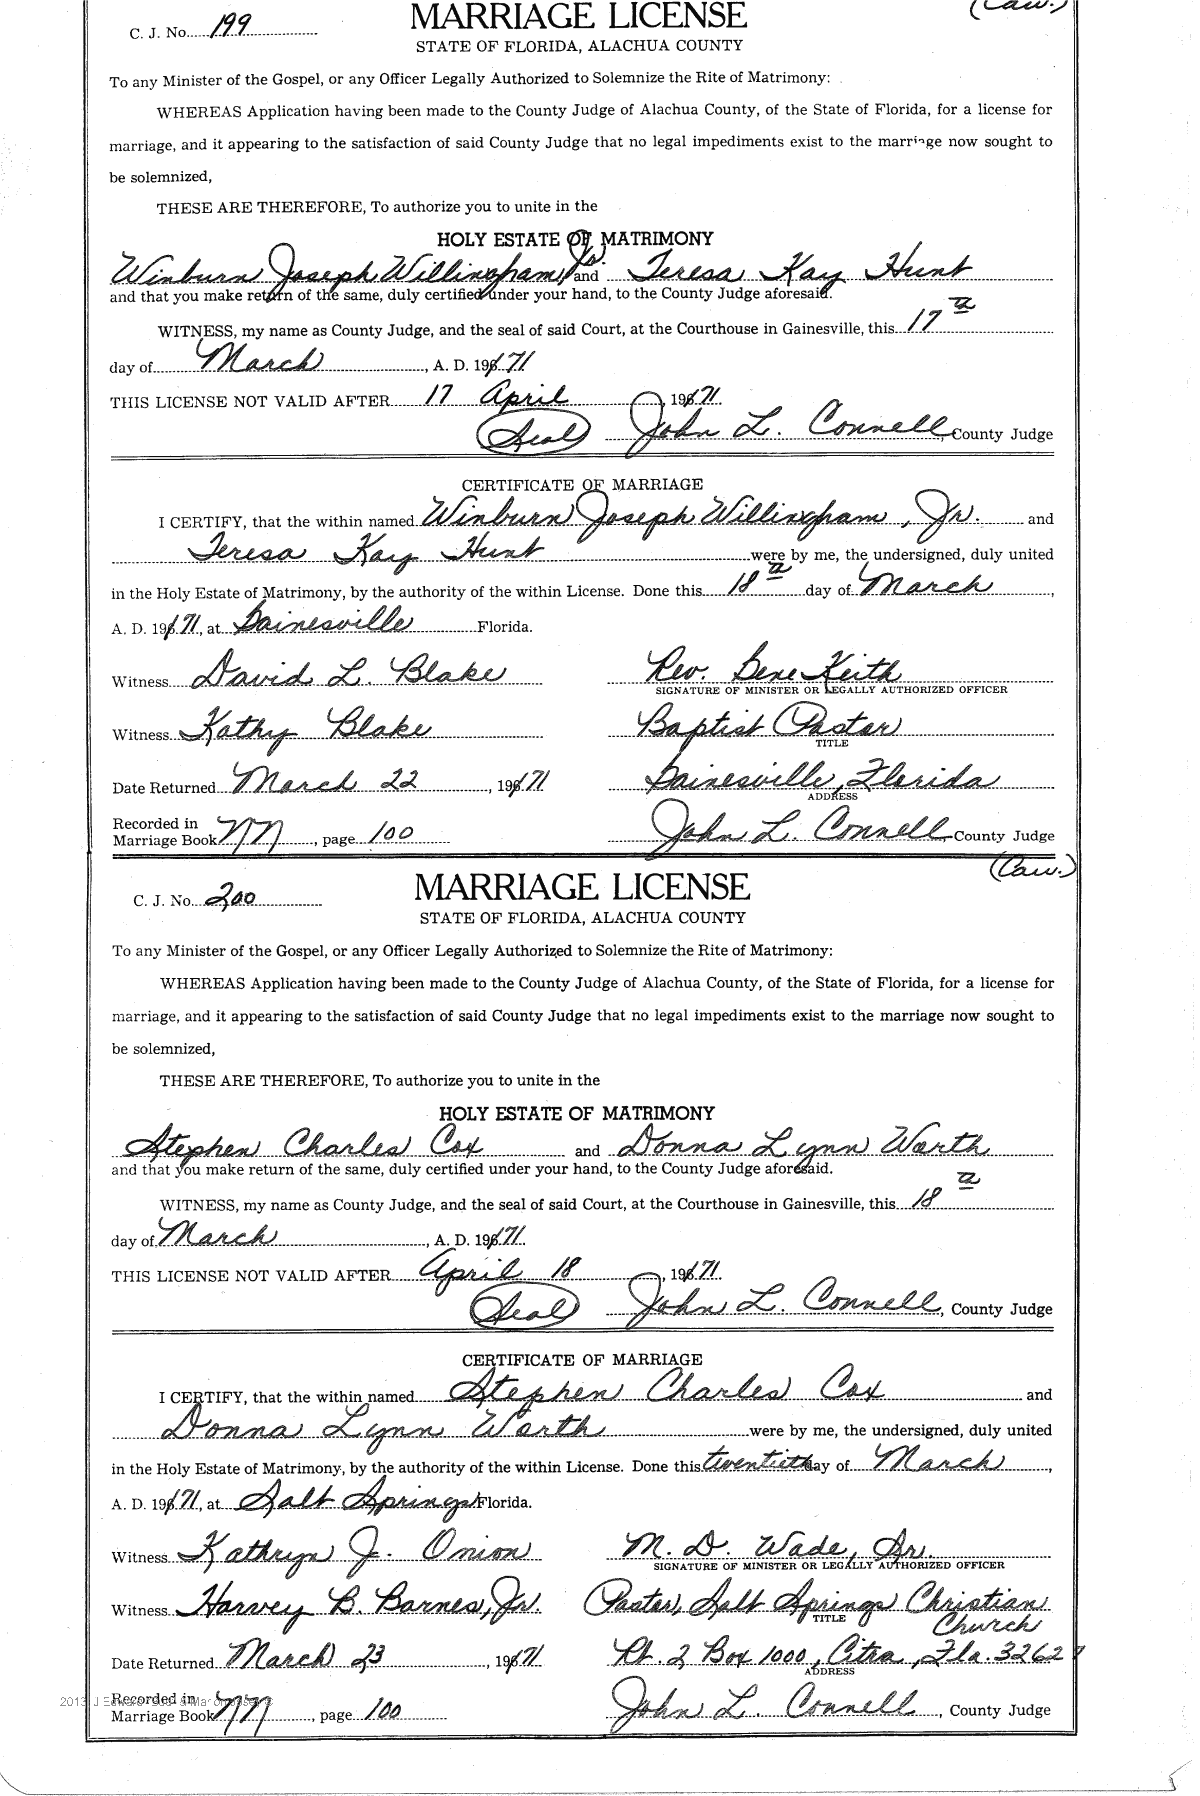 (Caw.)
C. J. No. 199
MARRIAGE LICENSE
STATE OF FLORIDA, ALACHUA COUNTY
To any Minister of the Gospel, or any Officer Legally Authorized to Solemnize the Rite of Matrimony:
WHEREAS Application having been made to the County Judge of Alachua County, of the State of Florida, for a license for
marriage, and it appearing to the satisfaction of said County Judge that no legal impediments exist to the marriage now sought to
be solemnized,
THESE ARE THEREFORE, To authorize you to unite in the
HOLY ESTATE OF MATRIMONY
Winburn Joseph Willingham, Jr. and Teresa Kay Hunt
and that you make return of the same, duly certified under your hand, to the County Judge aforesaid.
WITNESS, my name as County Judge, and the seal of said Court, at the Courthouse in Gainesville, this 17th
day of March, A. D. 1971
THIS LICENSE NOT VALID AFTER 17 April, 1971.
(Seal) John L. Connell, County Judge
CERTIFICATE OF MARRIAGE
I CERTIFY, that the within named Winburn Joseph Willingham, Jr. and
Teresa Kay Hunt were by me, the undersigned, duly united
in the Holy Estate of Matrimony, by the authority of the within License. Done this 18th day of March,
A. D. 1971, at Gainesville Florida.
Witness David L. Blake Rev. Gene Keith
SIGNATURE OF MINISTER OR LEGALLY AUTHORIZED OFFICER
Witness Kathy Blake Baptist Pastor
TITLE
Date Returned March 22, 1971 Gainesville, Florida
ADDRESS
Recorded in
Marriage Book NN, page 100 John L. Connell, County Judge
(Caw.)
C. J. No. 200
MARRIAGE LICENSE
STATE OF FLORIDA, ALACHUA COUNTY
To any Minister of the Gospel, or any Officer Legally Authorized to Solemnize the Rite of Matrimony:
WHEREAS Application having been made to the County Judge of Alachua County, of the State of Florida, for a license for
marriage, and it appearing to the satisfaction of said County Judge that no legal impediments exist to the marriage now sought to
be solemnized,
THESE ARE THEREFORE, To authorize you to unite in the
HOLY ESTATE OF MATRIMONY
Stephen Charles Cox and Donna Lynn Warth
and that you make return of the same, duly certified under your hand, to the County Judge aforesaid.
WITNESS, my name as County Judge, and the seal of said Court, at the Courthouse in Gainesville, this 18th
day of March, A. D. 1971.
THIS LICENSE NOT VALID AFTER April 18, 1971.
(Seal) John L. Connell, County Judge
CERTIFICATE OF MARRIAGE
I CERTIFY, that the within named Stephen Charles Cox and
Donna Lynn Warth were by me, the undersigned, duly united
in the Holy Estate of Matrimony, by the authority of the within License. Done this twentieth day of March,
A. D. 1971, at Salt Springs Florida.
Witness Kathryn J. Onion M. D. Wade, Sr.
SIGNATURE OF MINISTER OR LEGALLY AUTHORIZED OFFICER
Witness Harvey B. Barnes, Jr. Pastor, Salt Springs Christian
TITLE Church
Date Returned March 23, 1971 Rt. 2 Box 1000, Citra, Fla. 32627
ADDRESS
Recorded in
Marriage Book NN, page 100 John L. Connell, County Judge